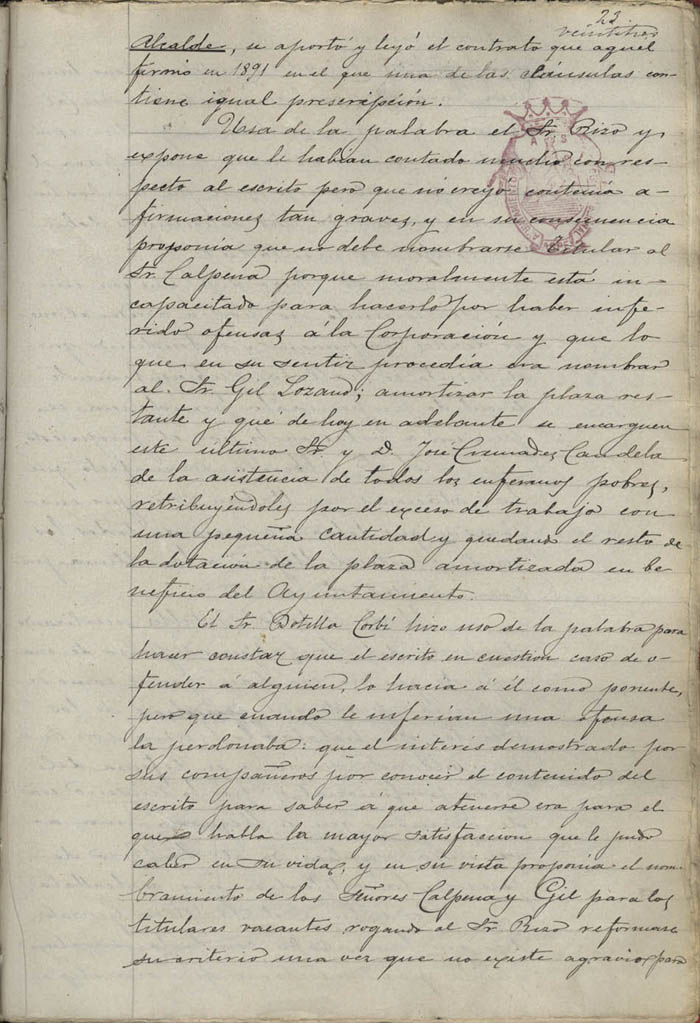 23
veintitres
Alcalde, se aportó y leyó el contrato que aquel
firmó en 1891 en el que una de las cláusulas con-
tiene igual prescripción.
Usa de la palabra el Sr. Rizo y
expone que le habian contado mucho con res-
pecto al escrito pero que no creyó contenia a-
firmaciones tan graves, y en su consecuencia
proponía que no debe nombrarse titular al
Sr. Calpena porque moralmente está in-
capacitado para hacerlo por haber infe-
rido ofensas á la Corporación y que lo
que en su sentir procedía era nombrar
al Sr. Gil Lozano; amortizar la plaza res-
tante y que de hoy en adelante se encarguen
este último Sr. y D. José Cremades Candela
de la asistencia de todos los enfermos pobres,
retribuyéndoles por el exceso de trabajo con
una pequeña cantidad y quedando el resto de
la dotación de la plaza amortizada en be-
neficio del Ayuntamiento.
El Sr. Botella Corbí hizo uso de la palabra para
hacer constar que el escrito en cuestion caso de o-
fender á alguien, lo hacia á él como ponente,
pero que cuando le inferian una ofensa
la perdonaba: que el interés demostrado por
sus compañeros por conocer el contenido del
escrito para saber á que atenerse era para el
que habla la mayor satisfaccion que le pudo
caber en su vida, y en su vista proponia el nom-
bramiento de los Señores Calpena y Gil para las
titulares vacantes rogando al Sr. Rizo reformase
su criterio una vez que no existe agravio para